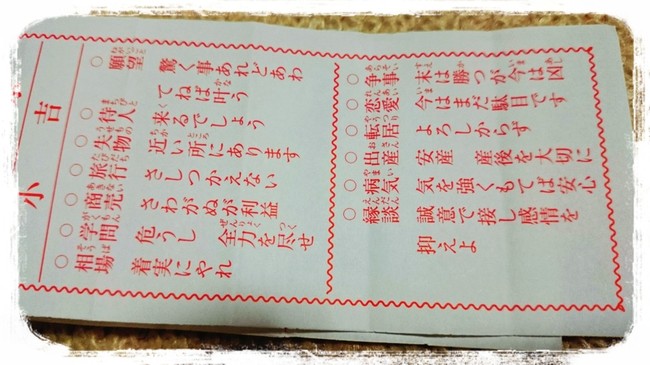 小吉
○願望 驚く事あれどあわ
てねば叶う
○待人 来るでしょう
○失物 近い所にあります
○旅行 さしつかえない
○商売 さわがぬが利益
○学問 危うし 全力を尽せ
○相場 着実にやれ
○争事 末は勝つが今は凶
○恋愛 今はまだ駄目です
○転居 よろしからず
○出産 安産 産後を大切に
○病気 気を強くもてば安心
○縁談 誠意で接し感情を
抑えよ